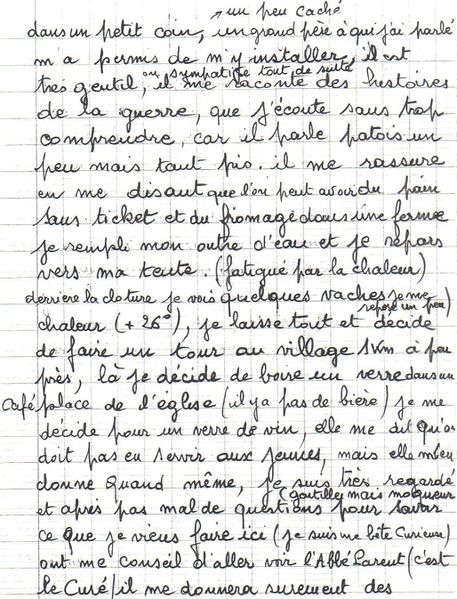 un peu caché
dans un petit coin, un grand père à qui j'ai parlé
m'a permis de m'y installer, il est
ou sympatice tout de suite
tres gentil, il me raconte des histoires
de la guerre, que j'écoute sans trop
comprendre, car il parle patois un
peu mais tant pis. il me rassure
en me disant que l'on peut avoir du pain
sans ticket et du fromage dans une ferme
je rempli mon outre d'eau et je repars
vers ma tente. (fatigué par la chaleur)
derriere la cloture je vois quelques vaches je me
repose un peu)
chaleur (+ 26°), je laisse tout et décide
de faire un tour au village 1 Km à peu
près, là je décide de boire un verre dans un
Café place de l'église (il y a pas de bière) je me
décide pour un verre de vin, elle me dit qu'on
doit pas en servir aux jeunes, mais elle m'en
donne quand même, je suis très regardé
(gentilles mais moqueur
et après pas mal de questions pour savoir
ce que je viens faire ici (je suis me bête Curieuse)
ont me conseil d'aller voir l'Abbé Parent (c'est
le Curé) il me donnera surement des